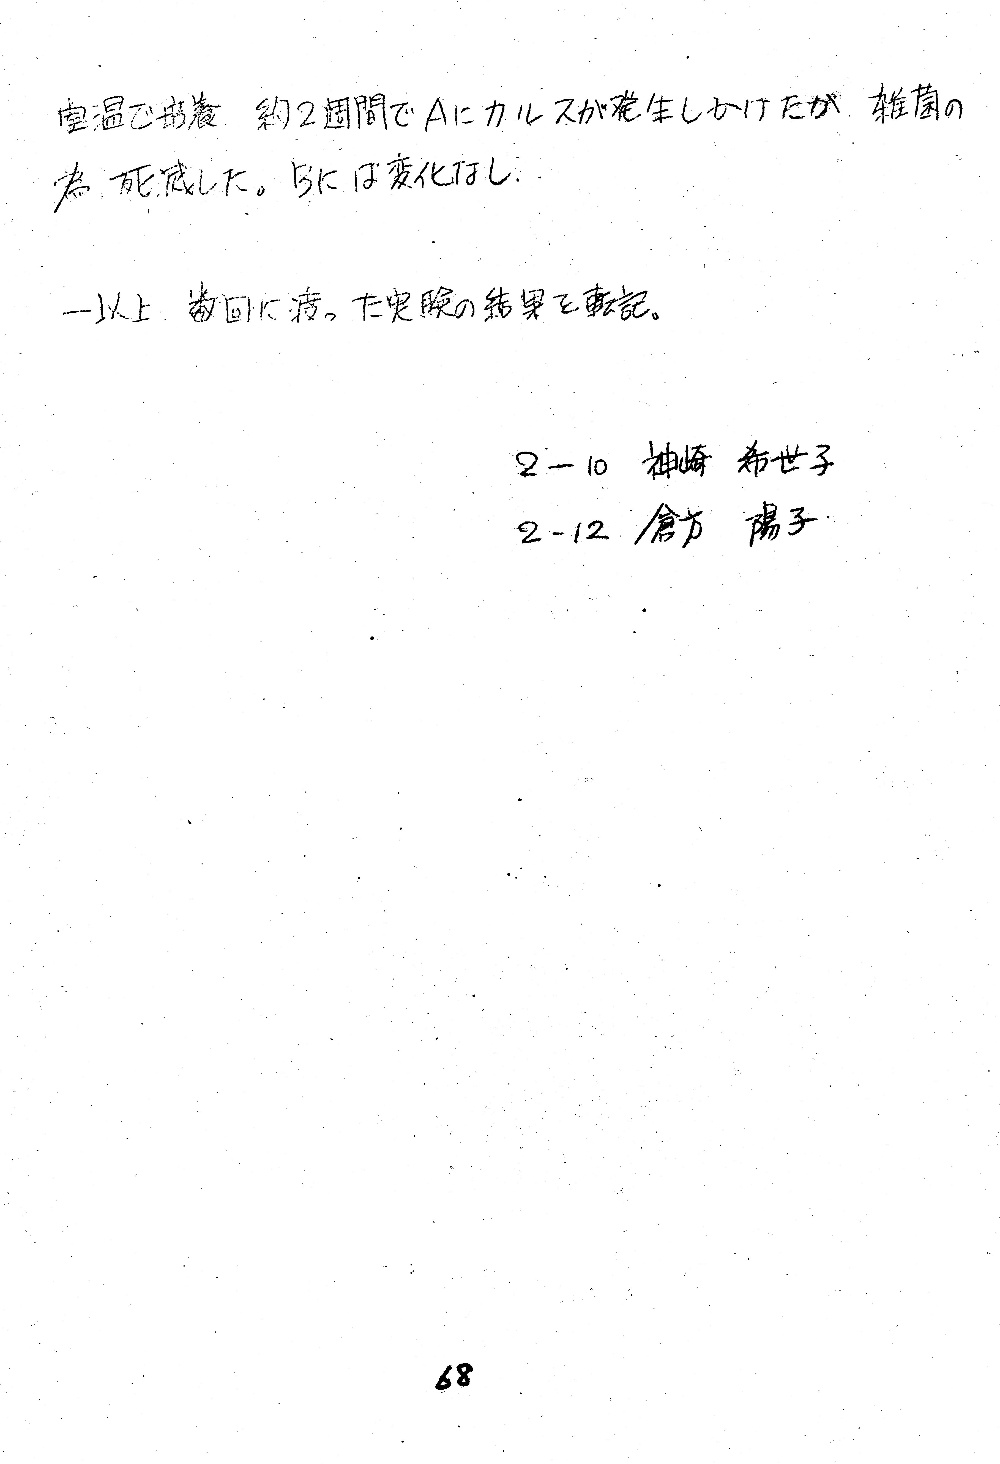 室温で培養 約2週間でAにカルスが発生しかけたが 雑菌の
為 死滅した。Bには変化なし.
一以上 数回に渡った実験の結果を転記。
2-10 神崎 希世子
2-12 倉方 陽子
68